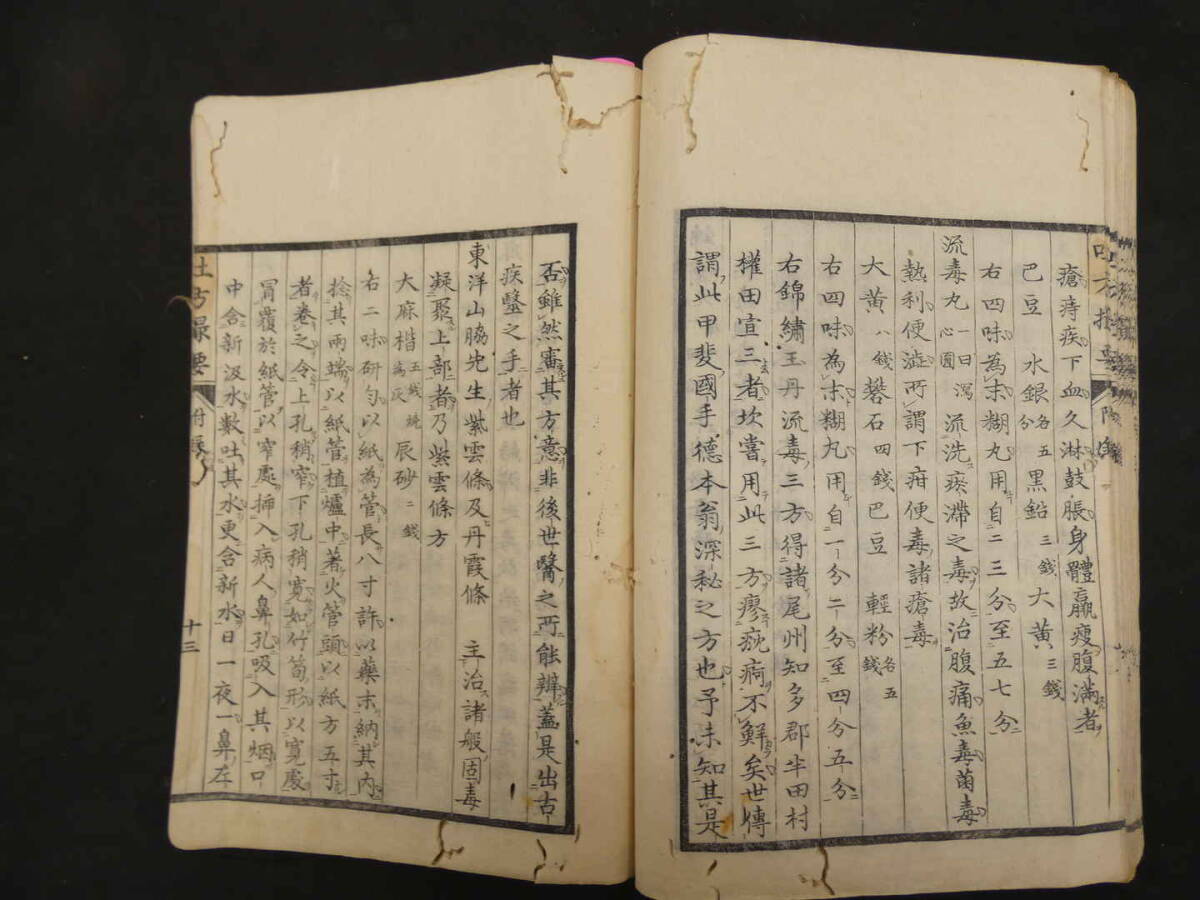 吐方撮要 附録
瘡痔疾下血久淋鼓脹身體羸瘦腹滿者
巴豆 水銀各五分 黒鉛三錢 大黄三錢
右四味為末糊丸用自二三分至五七分
流毒丸一曰瀉心圓 流洗瘀滯之毒故治腹痛魚毒菌毒
熱利便澁所謂下疳便毒諸瘡毒
大黄八錢 礬石四錢 巴豆 輕粉各五錢
右四味為末糊丸用自一分二分至四分五分
右錦繡玉丹流毒三方得諸尾州知多郡半田村
權田宣三者坎嘗用此三方瘳痼不鮮矣世傳
謂此甲斐國手德本翁深秘之方也予未知其是
否雖然審其方意非後世醫之所能辨蓋是出古
疾醫之手者也
東洋山脇先生紫雲條及丹霞條 主治諸般固毒
凝聚上部者乃紫雲條方
大麻楷五錢燒為灰 辰砂二錢
右二味研匀以紙為管長八寸許以藥末納其内
捻其兩端以紙管植爐中著火管頭以紙方五寸
者卷之令上孔稍窄下孔稍寬如竹筍形以寬處
冐覆於紙管以窄處揷入病人鼻孔吸入其烟口
中含新汲水數吐其水更含新水日一夜一鼻左
吐方撮要 附録 十三